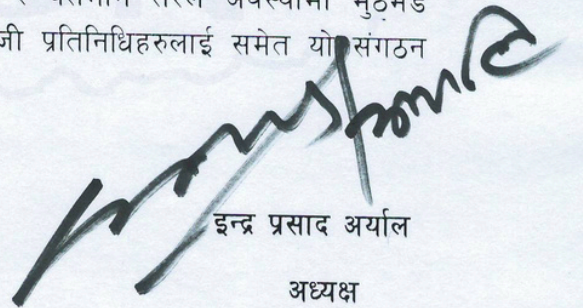 अवस्थामा
जी प्रतिनिधिहरुलाई समेत यो संगठन
इन्द्र प्रसाद अर्याल
अध्यक्ष